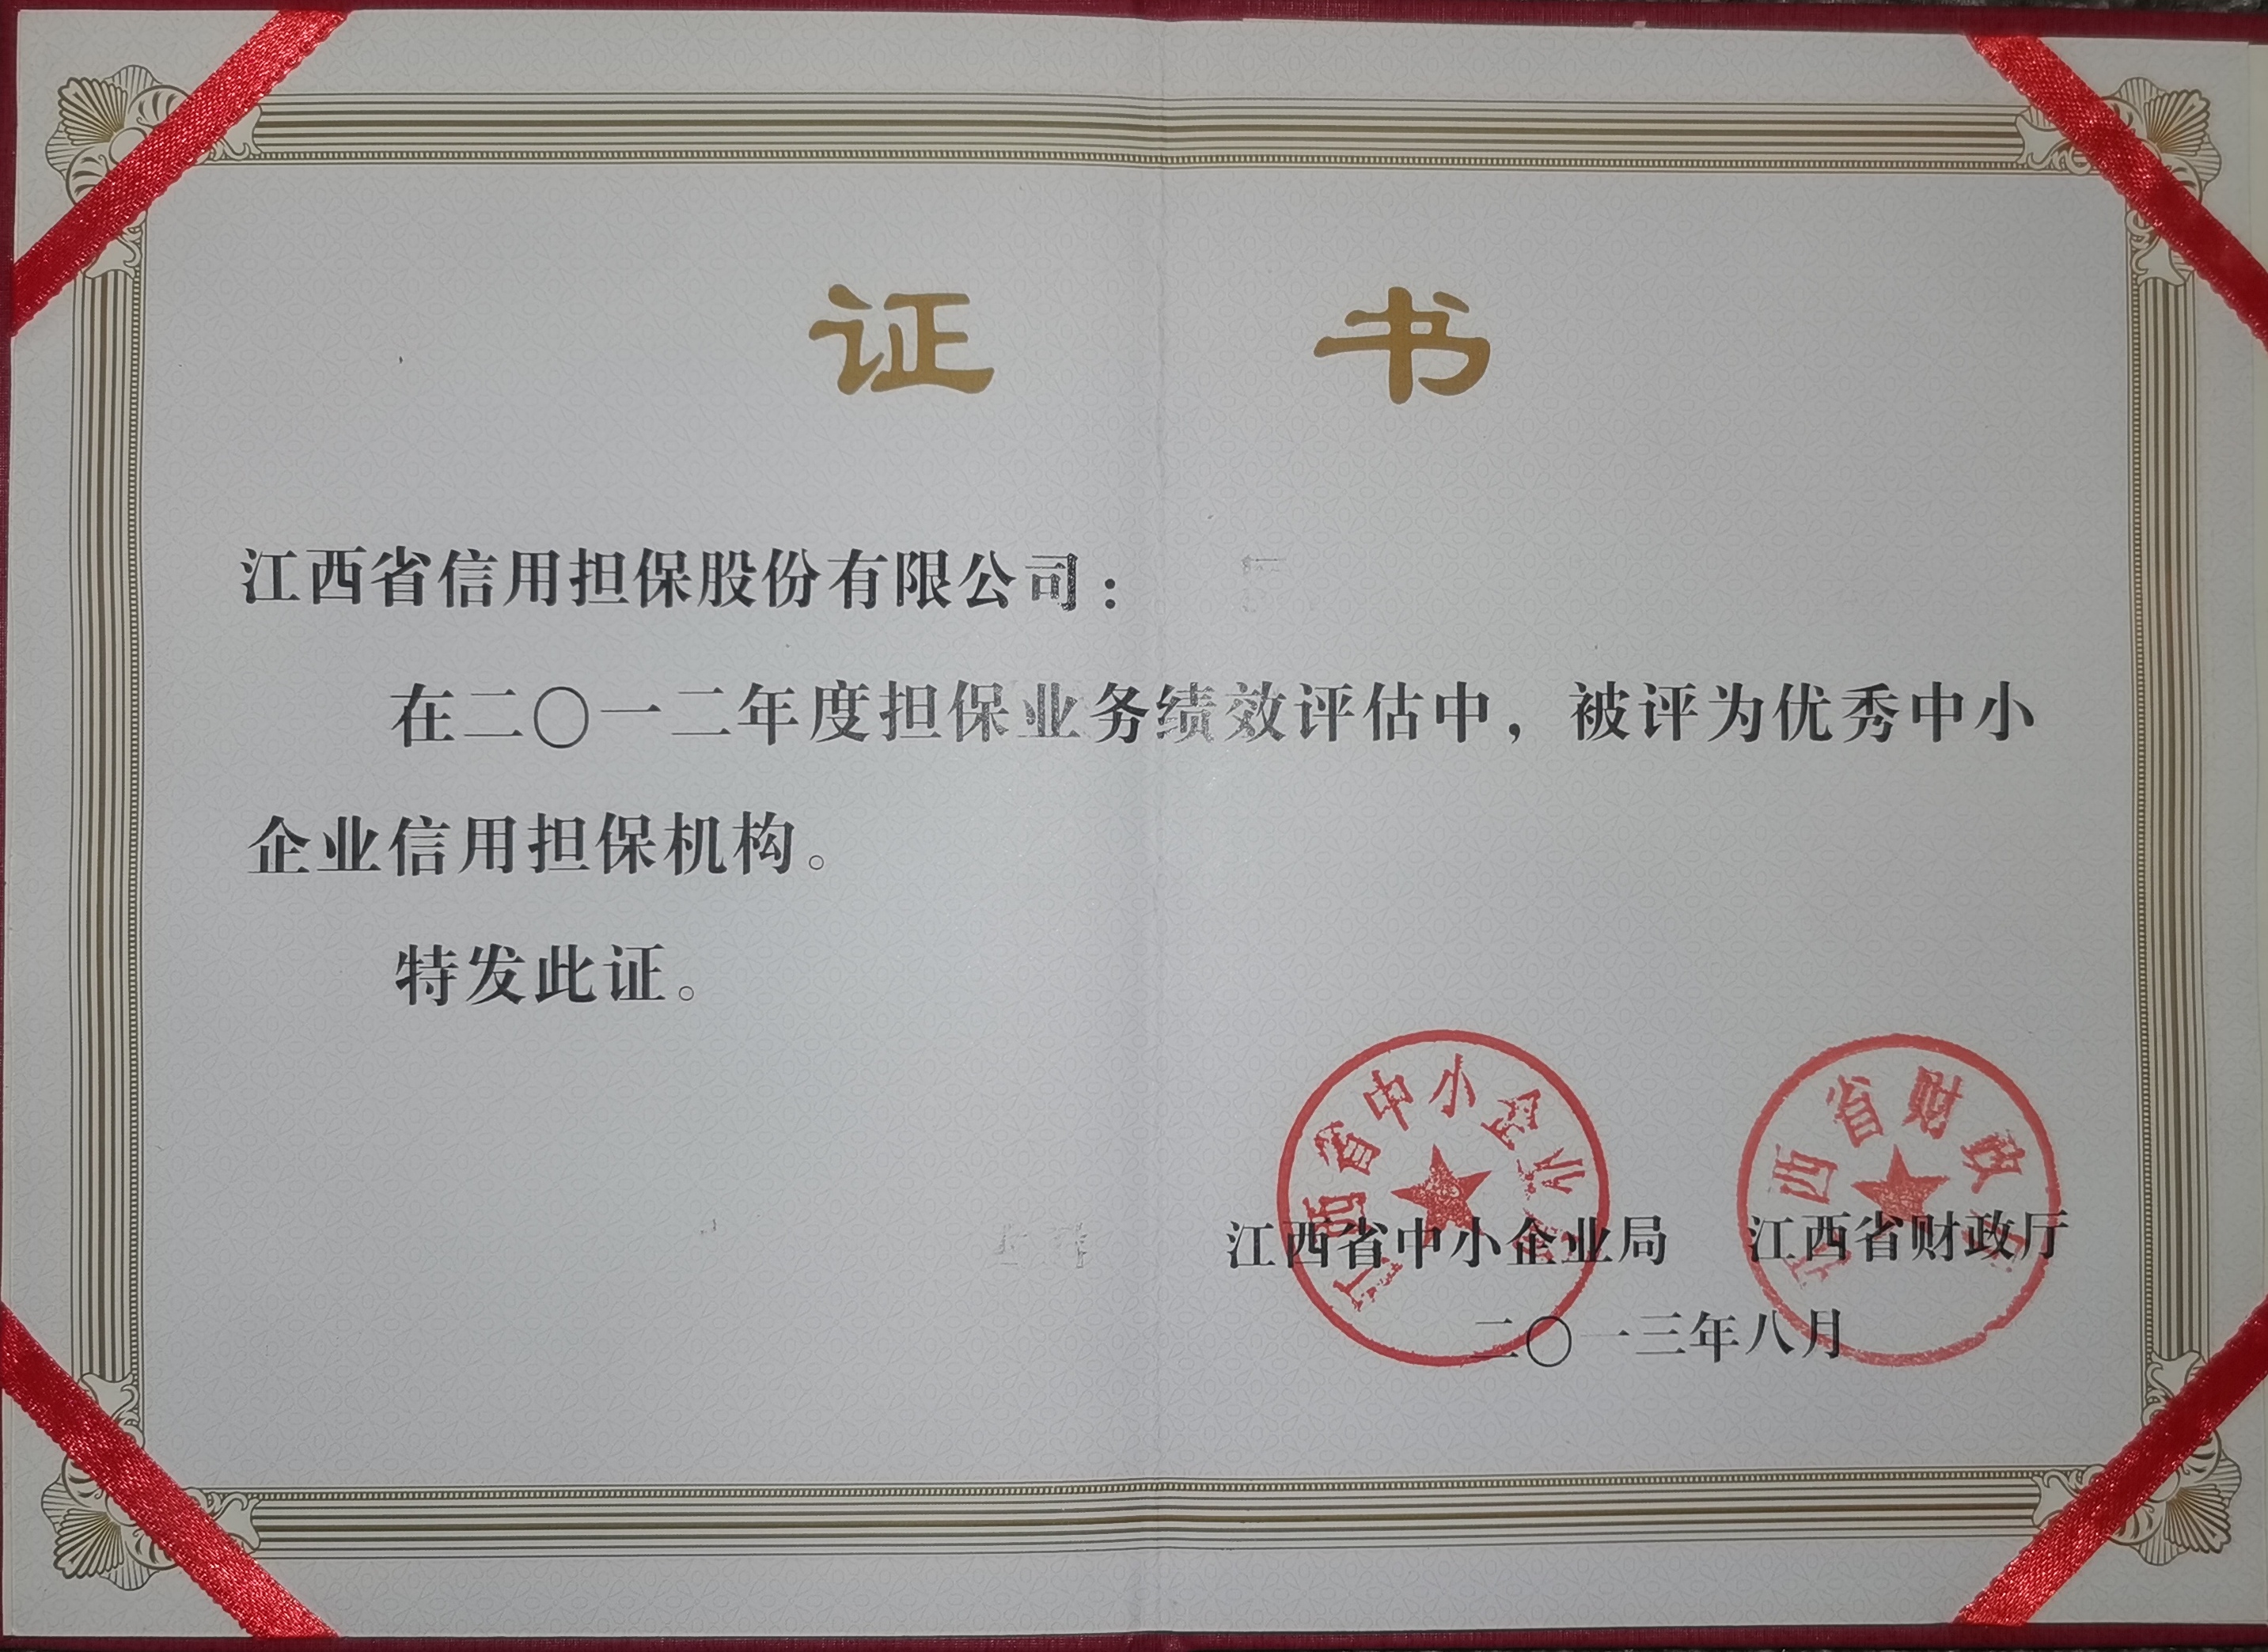 证书
江西省信用担保股份有限公司：
在二〇一二年度担保业务绩效评估中，被评为优秀中小
企业信用担保机构。
特发此证。
江西省中小企业
江西省财政厅
江西省中小企业局 江西省财政厅
二〇一三年八月